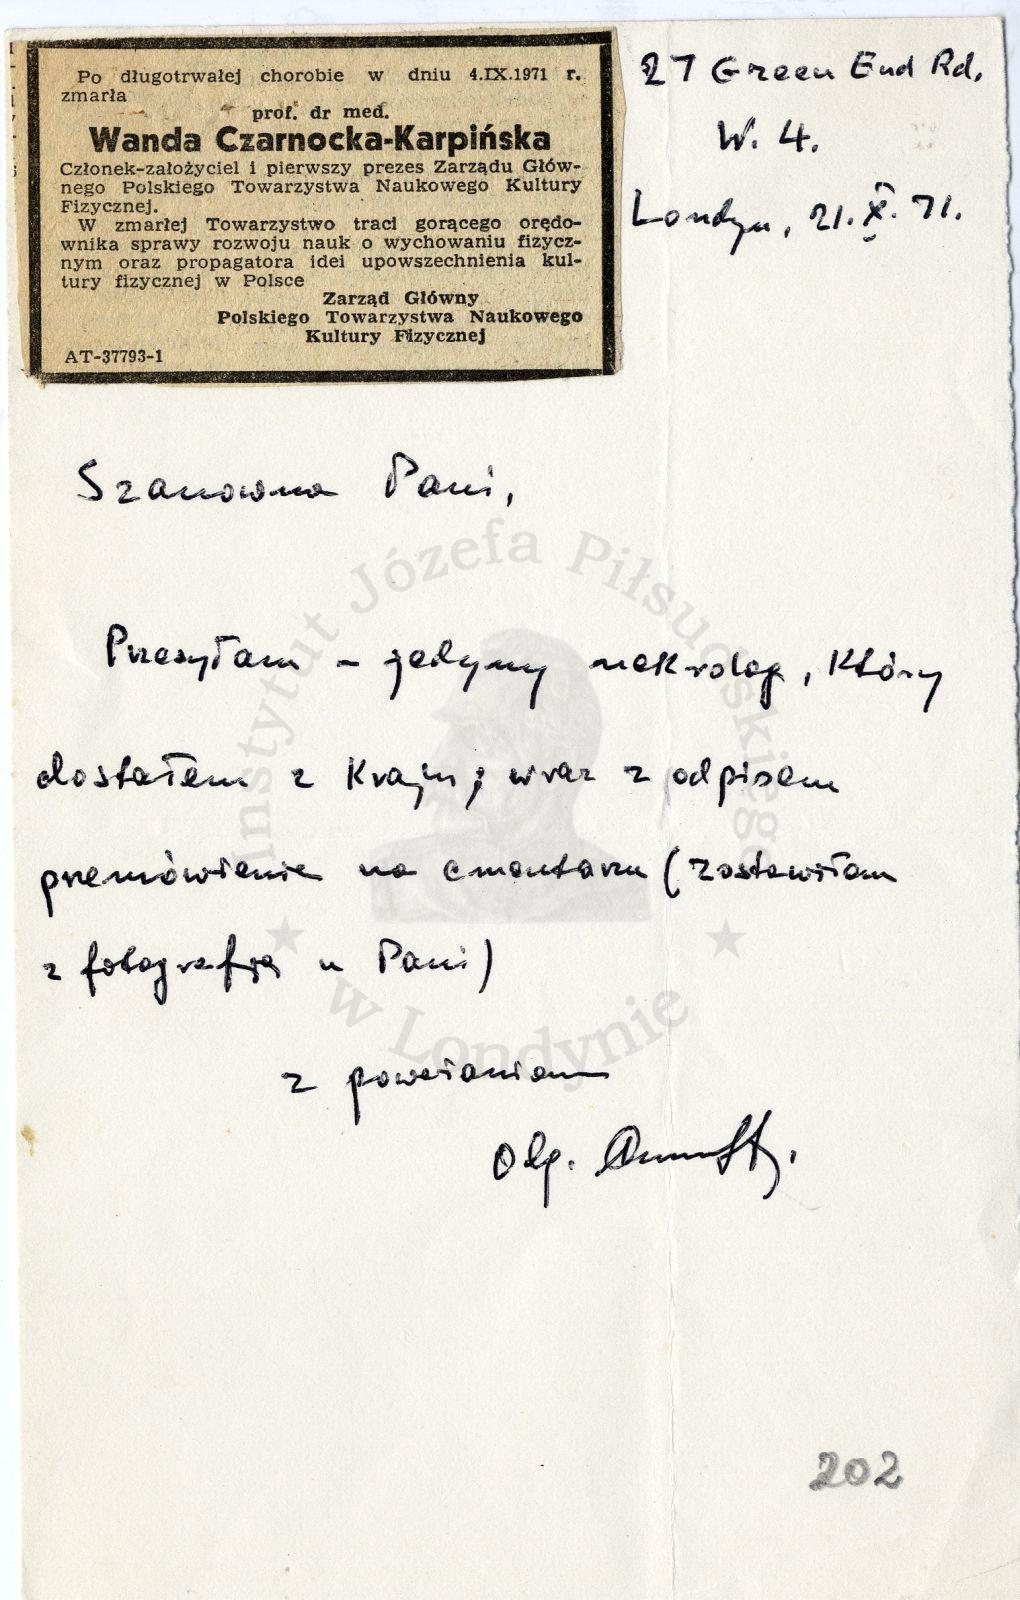 Po długotrwałej chorobie w dniu 4.IX.1971 r.
zmarła
prof. dr med.
Wanda Czarnocka-Karpińska
Członek-założyciel i pierwszy prezes Zarządu Głów-
nego Polskiego Towarzystwa Naukowego Kultury
Fizycznej.
W zmarłej Towarzystwo traci gorącego orędo-
wnika sprawy rozwoju nauk o wychowaniu fizycz-
nym oraz propagatora idei upowszechnienia kul-
tury fizycznej w Polsce
Zarząd Główny
Polskiego Towarzystwa Naukowego
Kultury Fizycznej
AT-37793-1
27 Green End Rd.
W. 4.
Londyn, 21.X.71.
Szanowna Pani,
Przesyłam – jedyny nekrolog, który
dostałem z Kraju; wraz z odpisem
przemówienia na cmentarzu (zostawiłem
z fotografią u Pani)
z poważaniem
Instytut Józefa Piłsudskiego
w Londynie
202